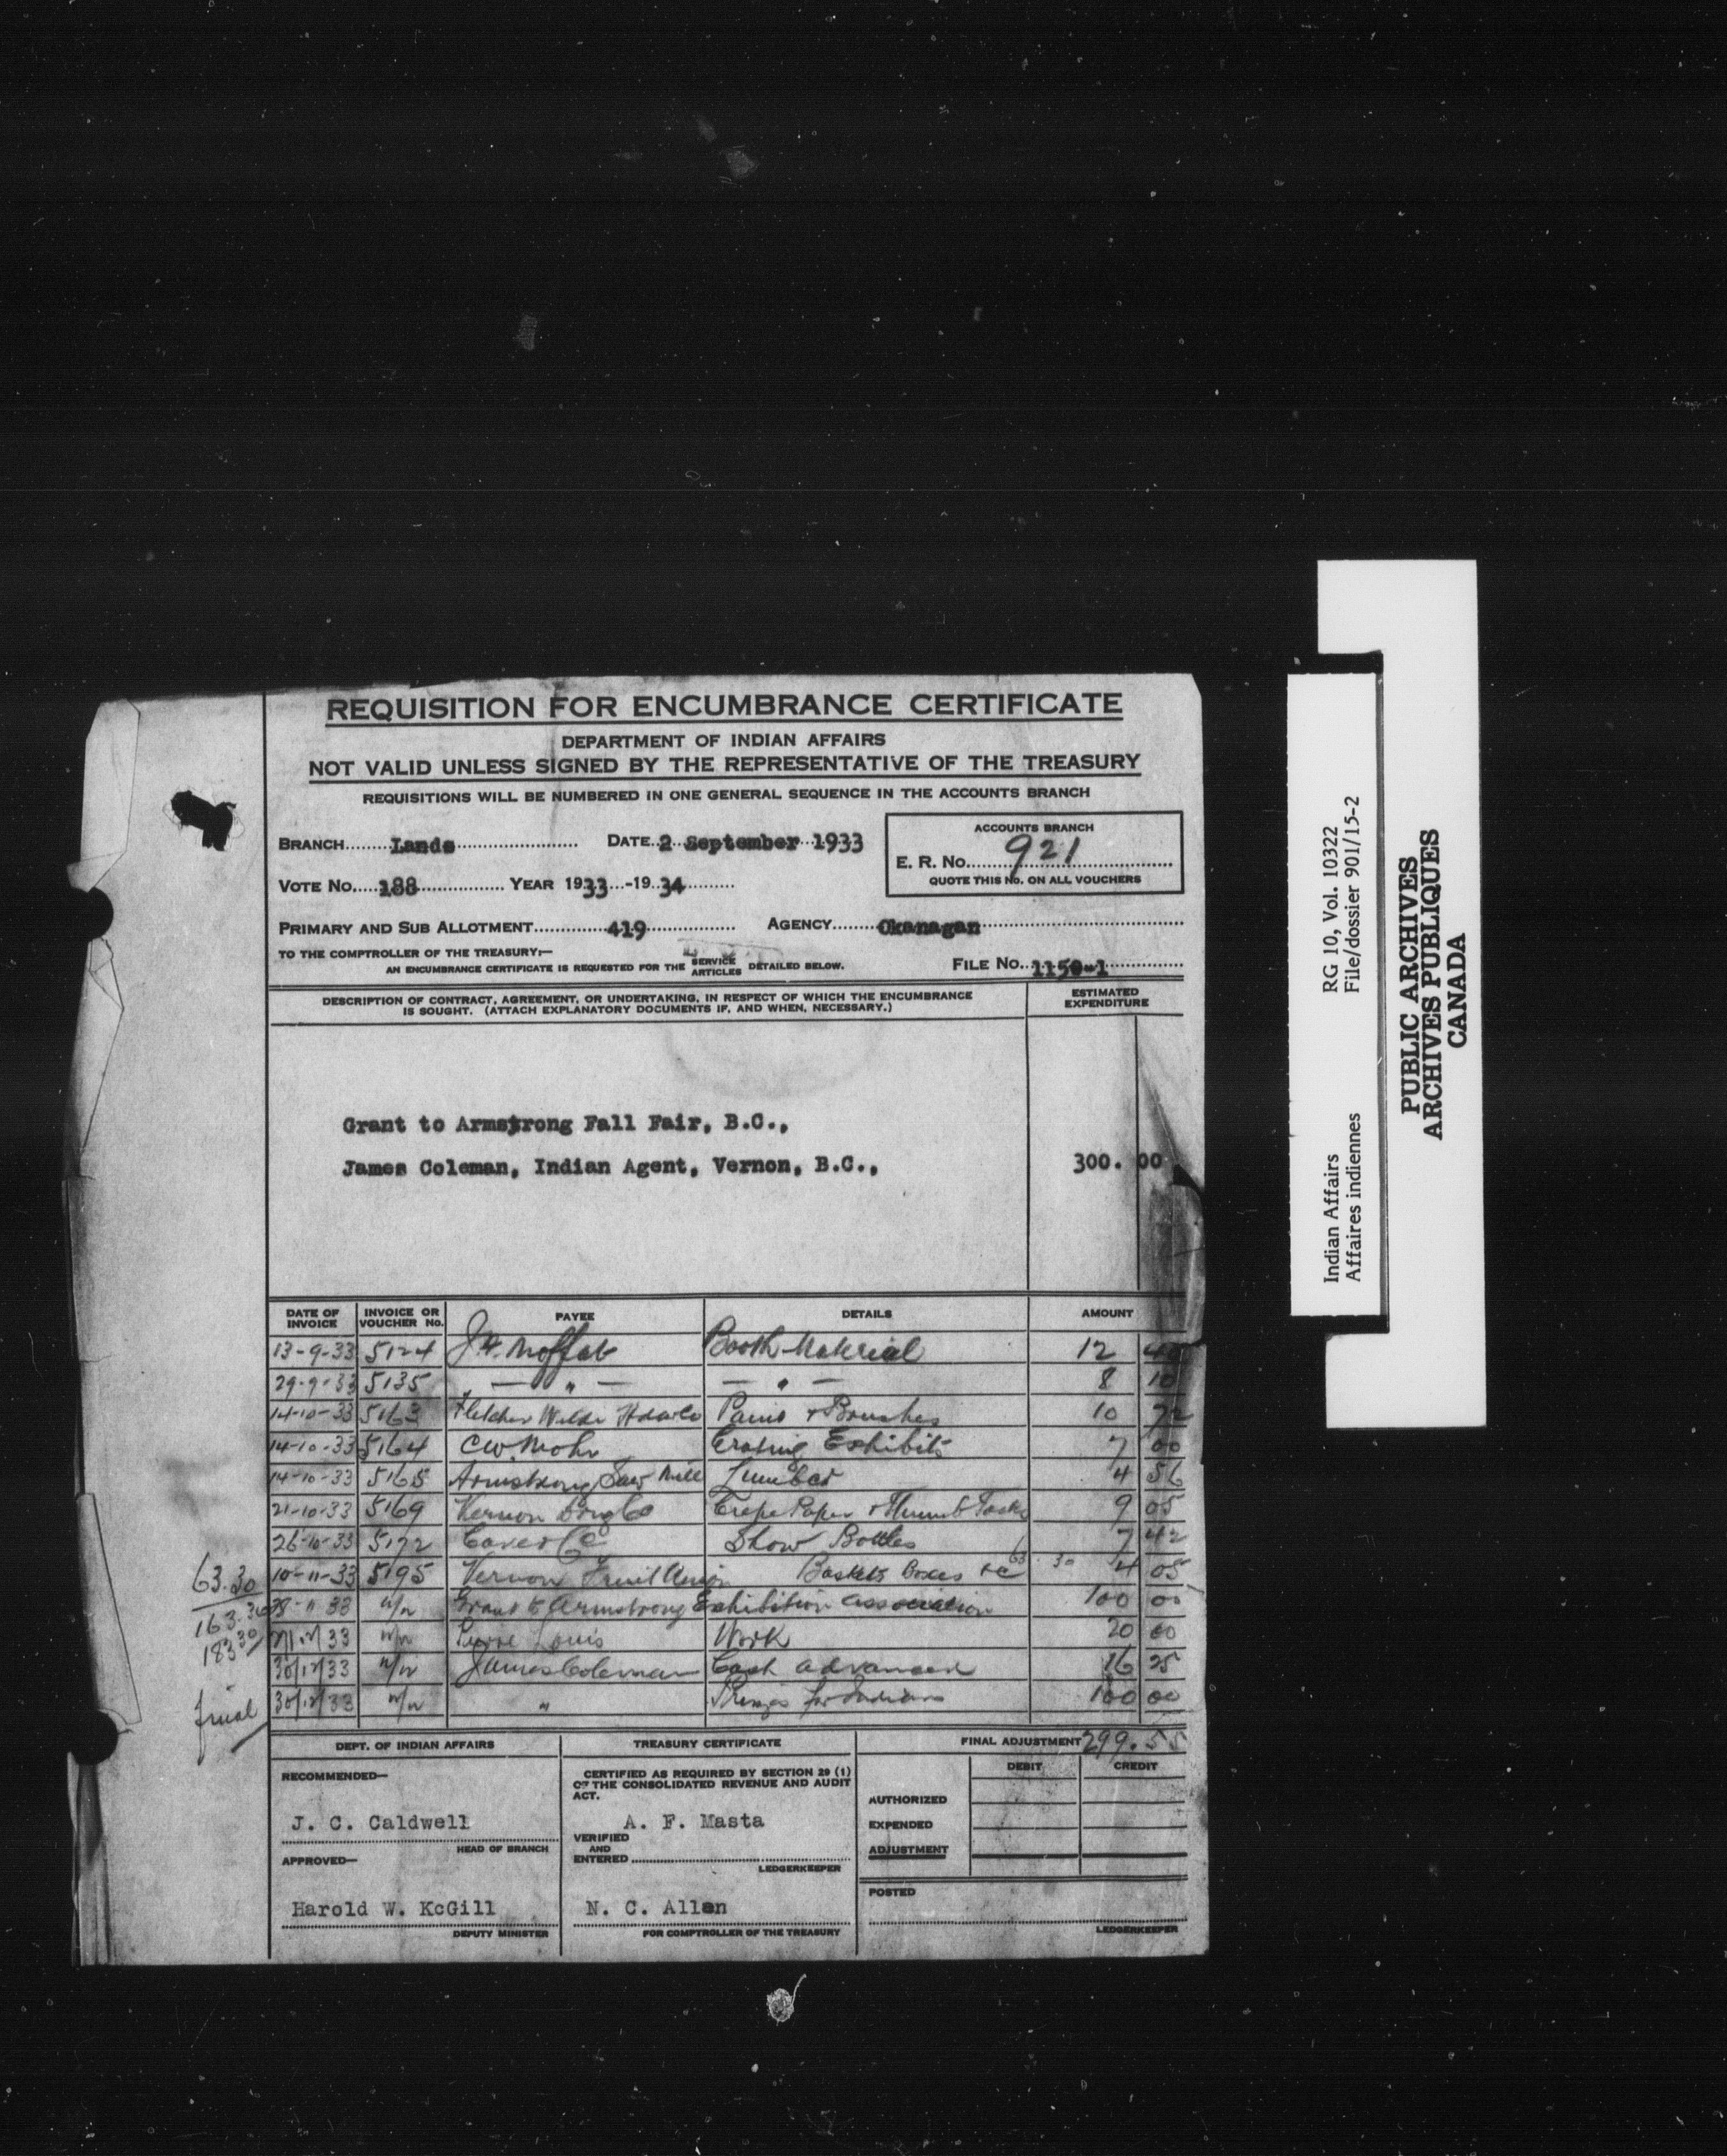 REQUISITION FOR ENCUMBRANCE CERTIFICATE
DEPARTMENT OF INDIAN AFFAIRS
NOT VALID UNLESS SIGNED BY THE REPRESENTATIVE OF THE TREASURY
REQUISITIONS WILL BE NUMBERED IN ONE GENERAL SEQUENCE IN THE ACCOUNTS BRANCH
BRANCH Lands DATE 2 September 1933
ACCOUNTS BRANCH
E. R. No. 921
QUOTE THIS No. ON ALL VOUCHERS
VOTE No. 188 YEAR 1933-1934
PRIMARY AND SUB ALLOTMENT 419 AGENCY Okanagan
TO THE COMPTROLLER OF THE TREASURY:—
AN ENCUMBRANCE CERTIFICATE IS REQUESTED FOR THE SERVICE ARTICLES DETAILED BELOW. FILE No. 1150-1
DESCRIPTION OF CONTRACT, AGREEMENT, OR UNDERTAKING, IN RESPECT OF WHICH THE ENCUMBRANCE
IS SOUGHT. (ATTACH EXPLANATORY DOCUMENTS IF, AND WHEN, NECESSARY.)
ESTIMATED
EXPENDITURE
Grant to Armstrong Fall Fair, B.C.,
James Coleman, Indian Agent, Vernon, B.C., 300.00
DATE OF INVOICE INVOICE OR VOUCHER No. PAYEE DETAILS AMOUNT
13-9-33 5124 Moffat Booth Material 12 40
29-9-33 5135 — " — — " — 8 10
14-10-33 5163 Fletcher Wilde Paint + Brushes 10 72
14-10-33 5164 C.W. Mohr Crating Exhibits 7 00
14-10-33 5165 Armstrong Saw Mill Lumber 4 56
21-10-33 5169 Vernon Drug Co Crepe Paper + Thumb Tacks 9 05
26-10-33 5172 Show Bottles 7 42
63.30 10-11-33 5195 Vernon Fruit Union Baskets Boxes &c 63.30 4 05
163.30 28-11-33 Grant to Armstrong Exhibition Association 100 00
183 30 33 Pierre Louis Work 20 00
30/12/33 James Coleman Cash advanced 16 25
final 30/12/33 " for Indians 100 00
DEPT. OF INDIAN AFFAIRS
RECOMMENDED—
J. C. Caldwell
HEAD OF BRANCH
APPROVED—
Harold W. KcGill
DEPUTY MINISTER
TREASURY CERTIFICATE
CERTIFIED AS REQUIRED BY SECTION 29 (1)
OF THE CONSOLIDATED REVENUE AND AUDIT
ACT.
A. F. Masta
VERIFIED
AND
ENTERED
LEDGERKEEPER
N. C. Allen
FOR COMPTROLLER OF THE TREASURY
FINAL ADJUSTMENT 299.55
DEBIT CREDIT
AUTHORIZED
EXPENDED
ADJUSTMENT
POSTED
LEDGERKEEPER
Indian Affairs RG 10, Vol. 10322
Affaires indiennes File/dossier 901/15-2
PUBLIC ARCHIVES
ARCHIVES PUBLIQUES
CANADA